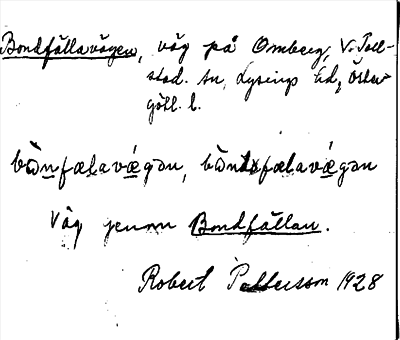 Bondfällavägen, väg på Omberg, V. Toll-
stad sn, Lysings hd, Öster-
götl. l.
bὼnfæḷavǽgən, bὼntfæḷavǽgən
Väg genom Bondfällan.
Robert Pettersson 1928